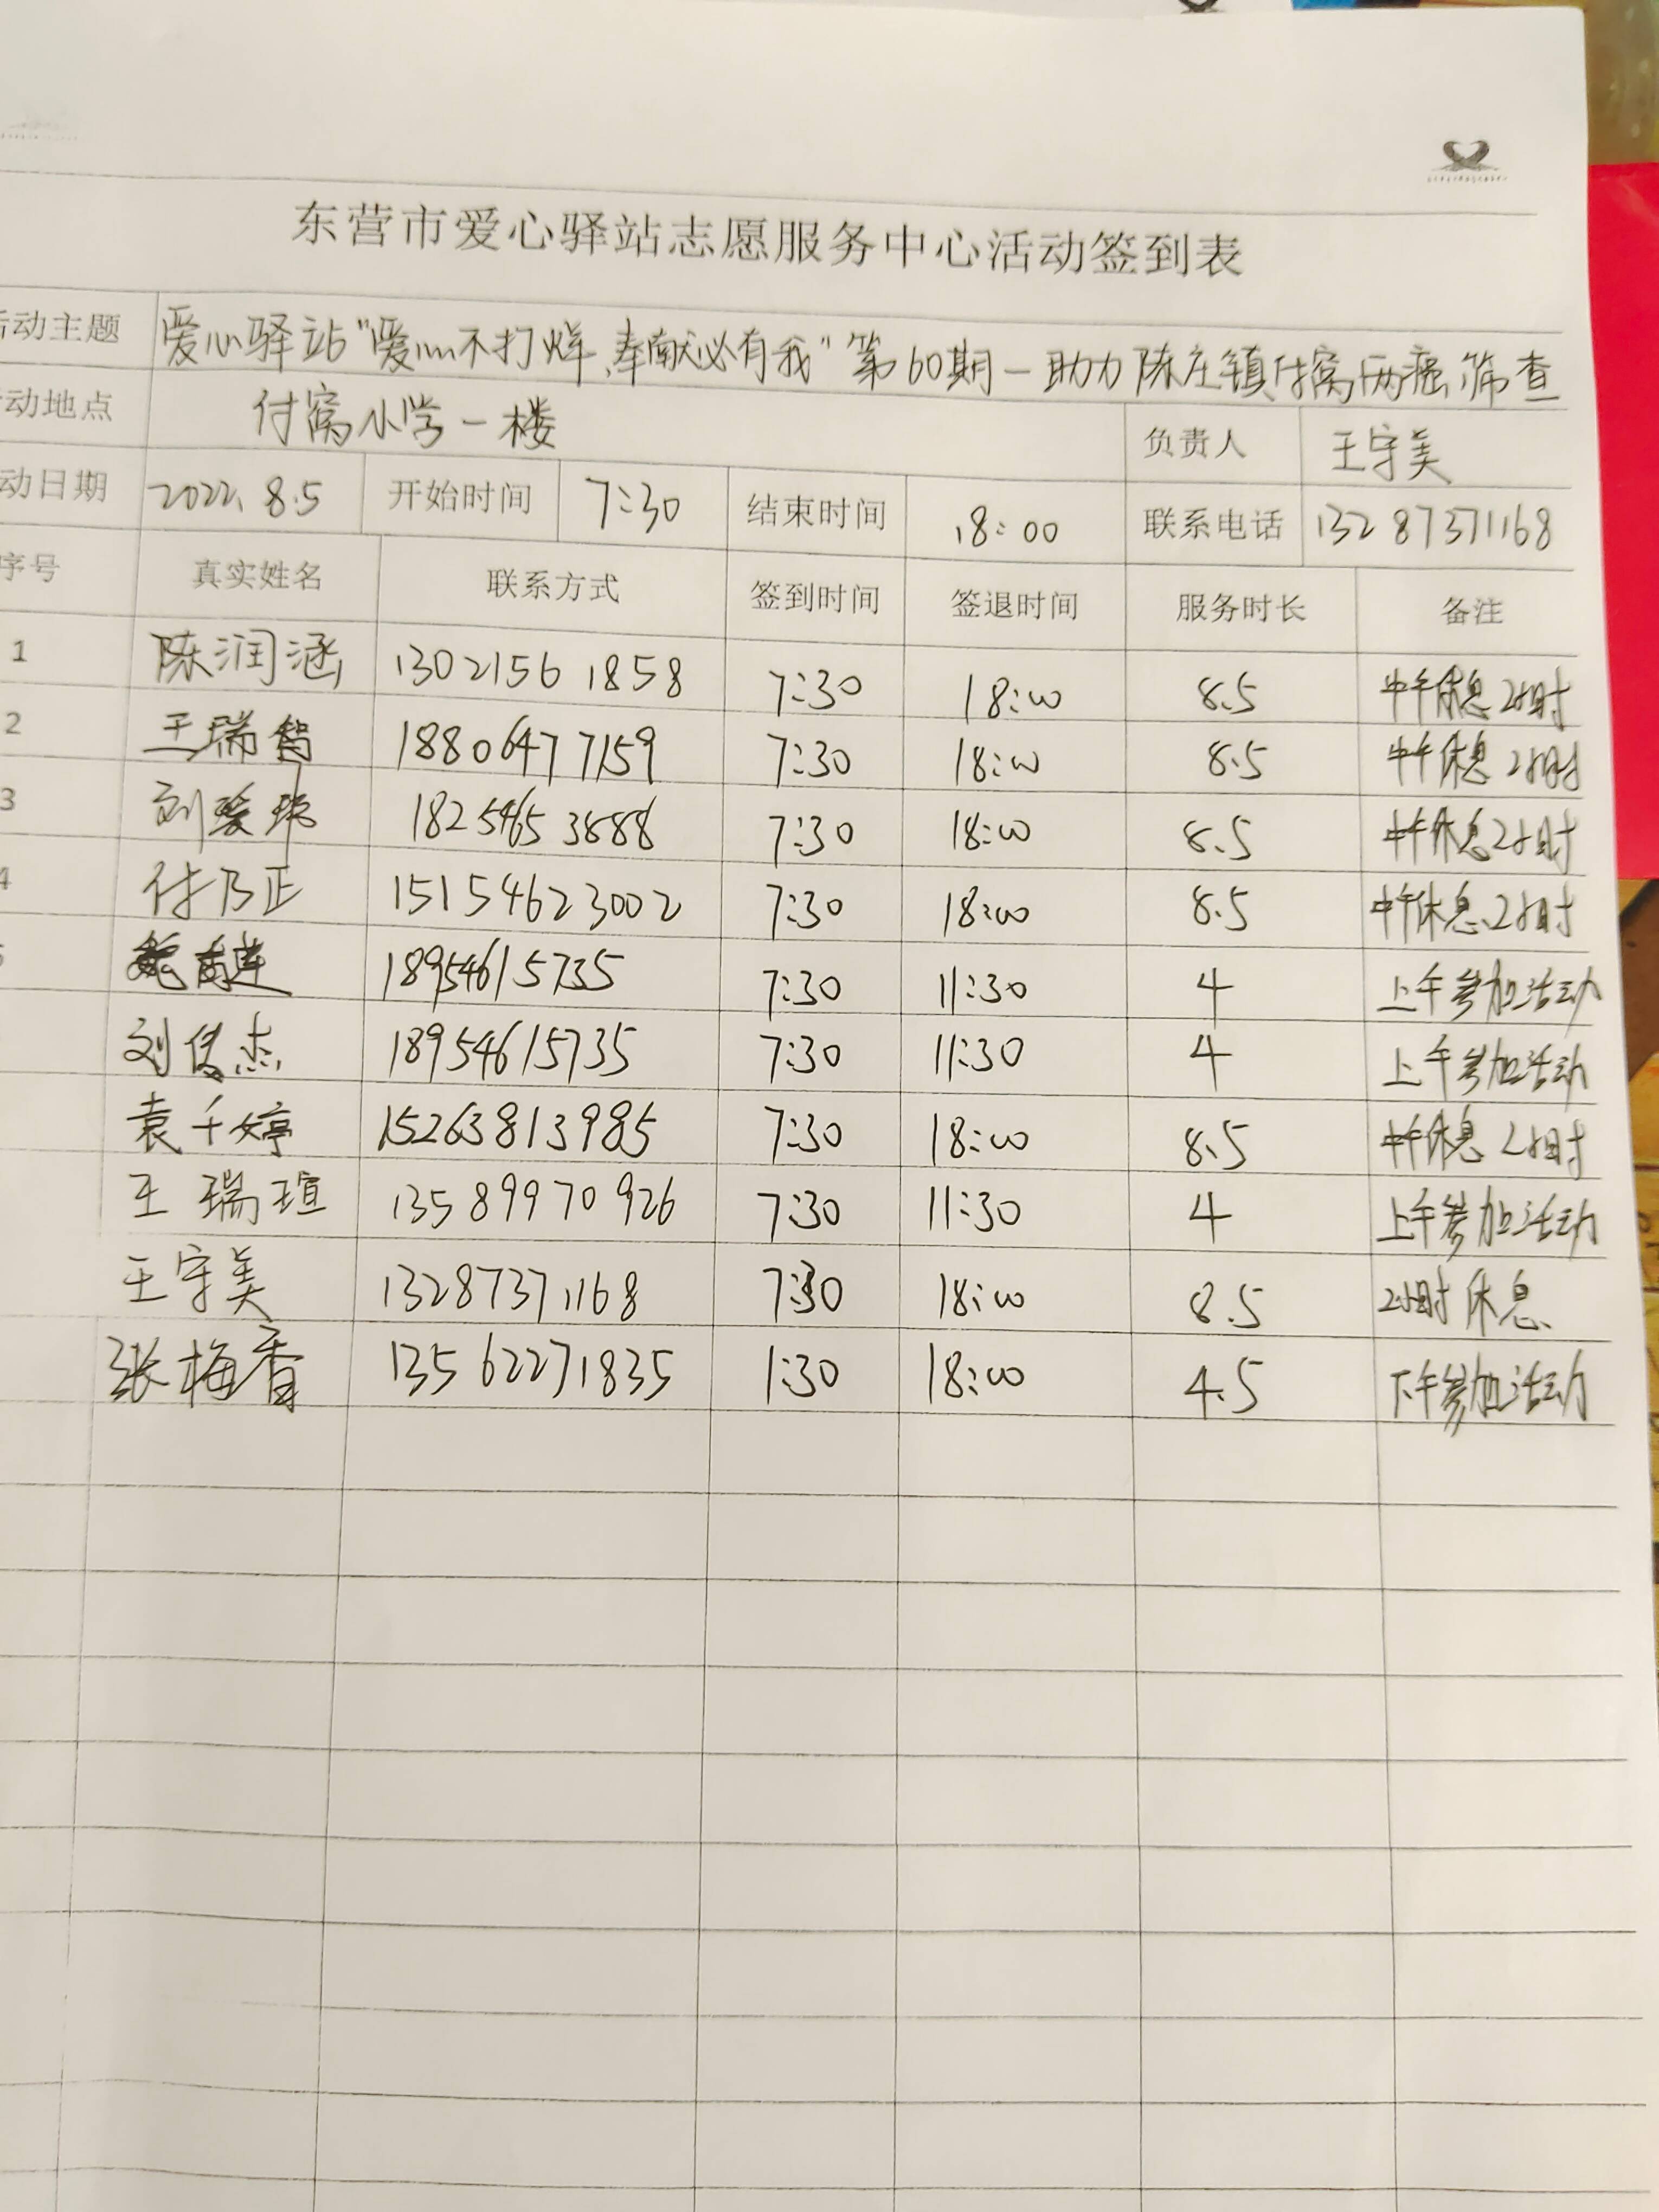 东营市爱心驿站志愿服务中心活动签到表
动主题 爱心驿站"爱心不打烊、奉献必有我"第60期一助力陈庄镇付窝两癌筛查
动地点 付窝小学一楼 负责人 王守美
动日期 2022.8.5 开始时间 7:30 结束时间 18:00 联系电话 13287371168
序号 真实姓名 联系方式 签到时间 签退时间 服务时长 备注
1 陈润涵 13021561858 7:30 18:00 8.5 中午休息2小时
2 王瑞智 18806477159 7:30 18:00 8.5 中午休息2小时
3 刘爱玮 18254653888 7:30 18:00 8.5 中午休息2小时
4 付乃正 15154623002 7:30 18:00 8.5 中午休息2小时
18954615735 7:30 11:30 4 上午参加活动
刘俊杰 18954615735 7:30 11:30 4 上午参加活动
袁千婷 15263813985 7:30 18:00 8.5 中午休息2小时
王瑞瑄 13589970926 7:30 11:30 4 上午参加活动
王守美 13287371168 7:30 18:00 8.5 2小时休息
张梅香 13562271835 1:30 18:00 4.5 下午参加活动